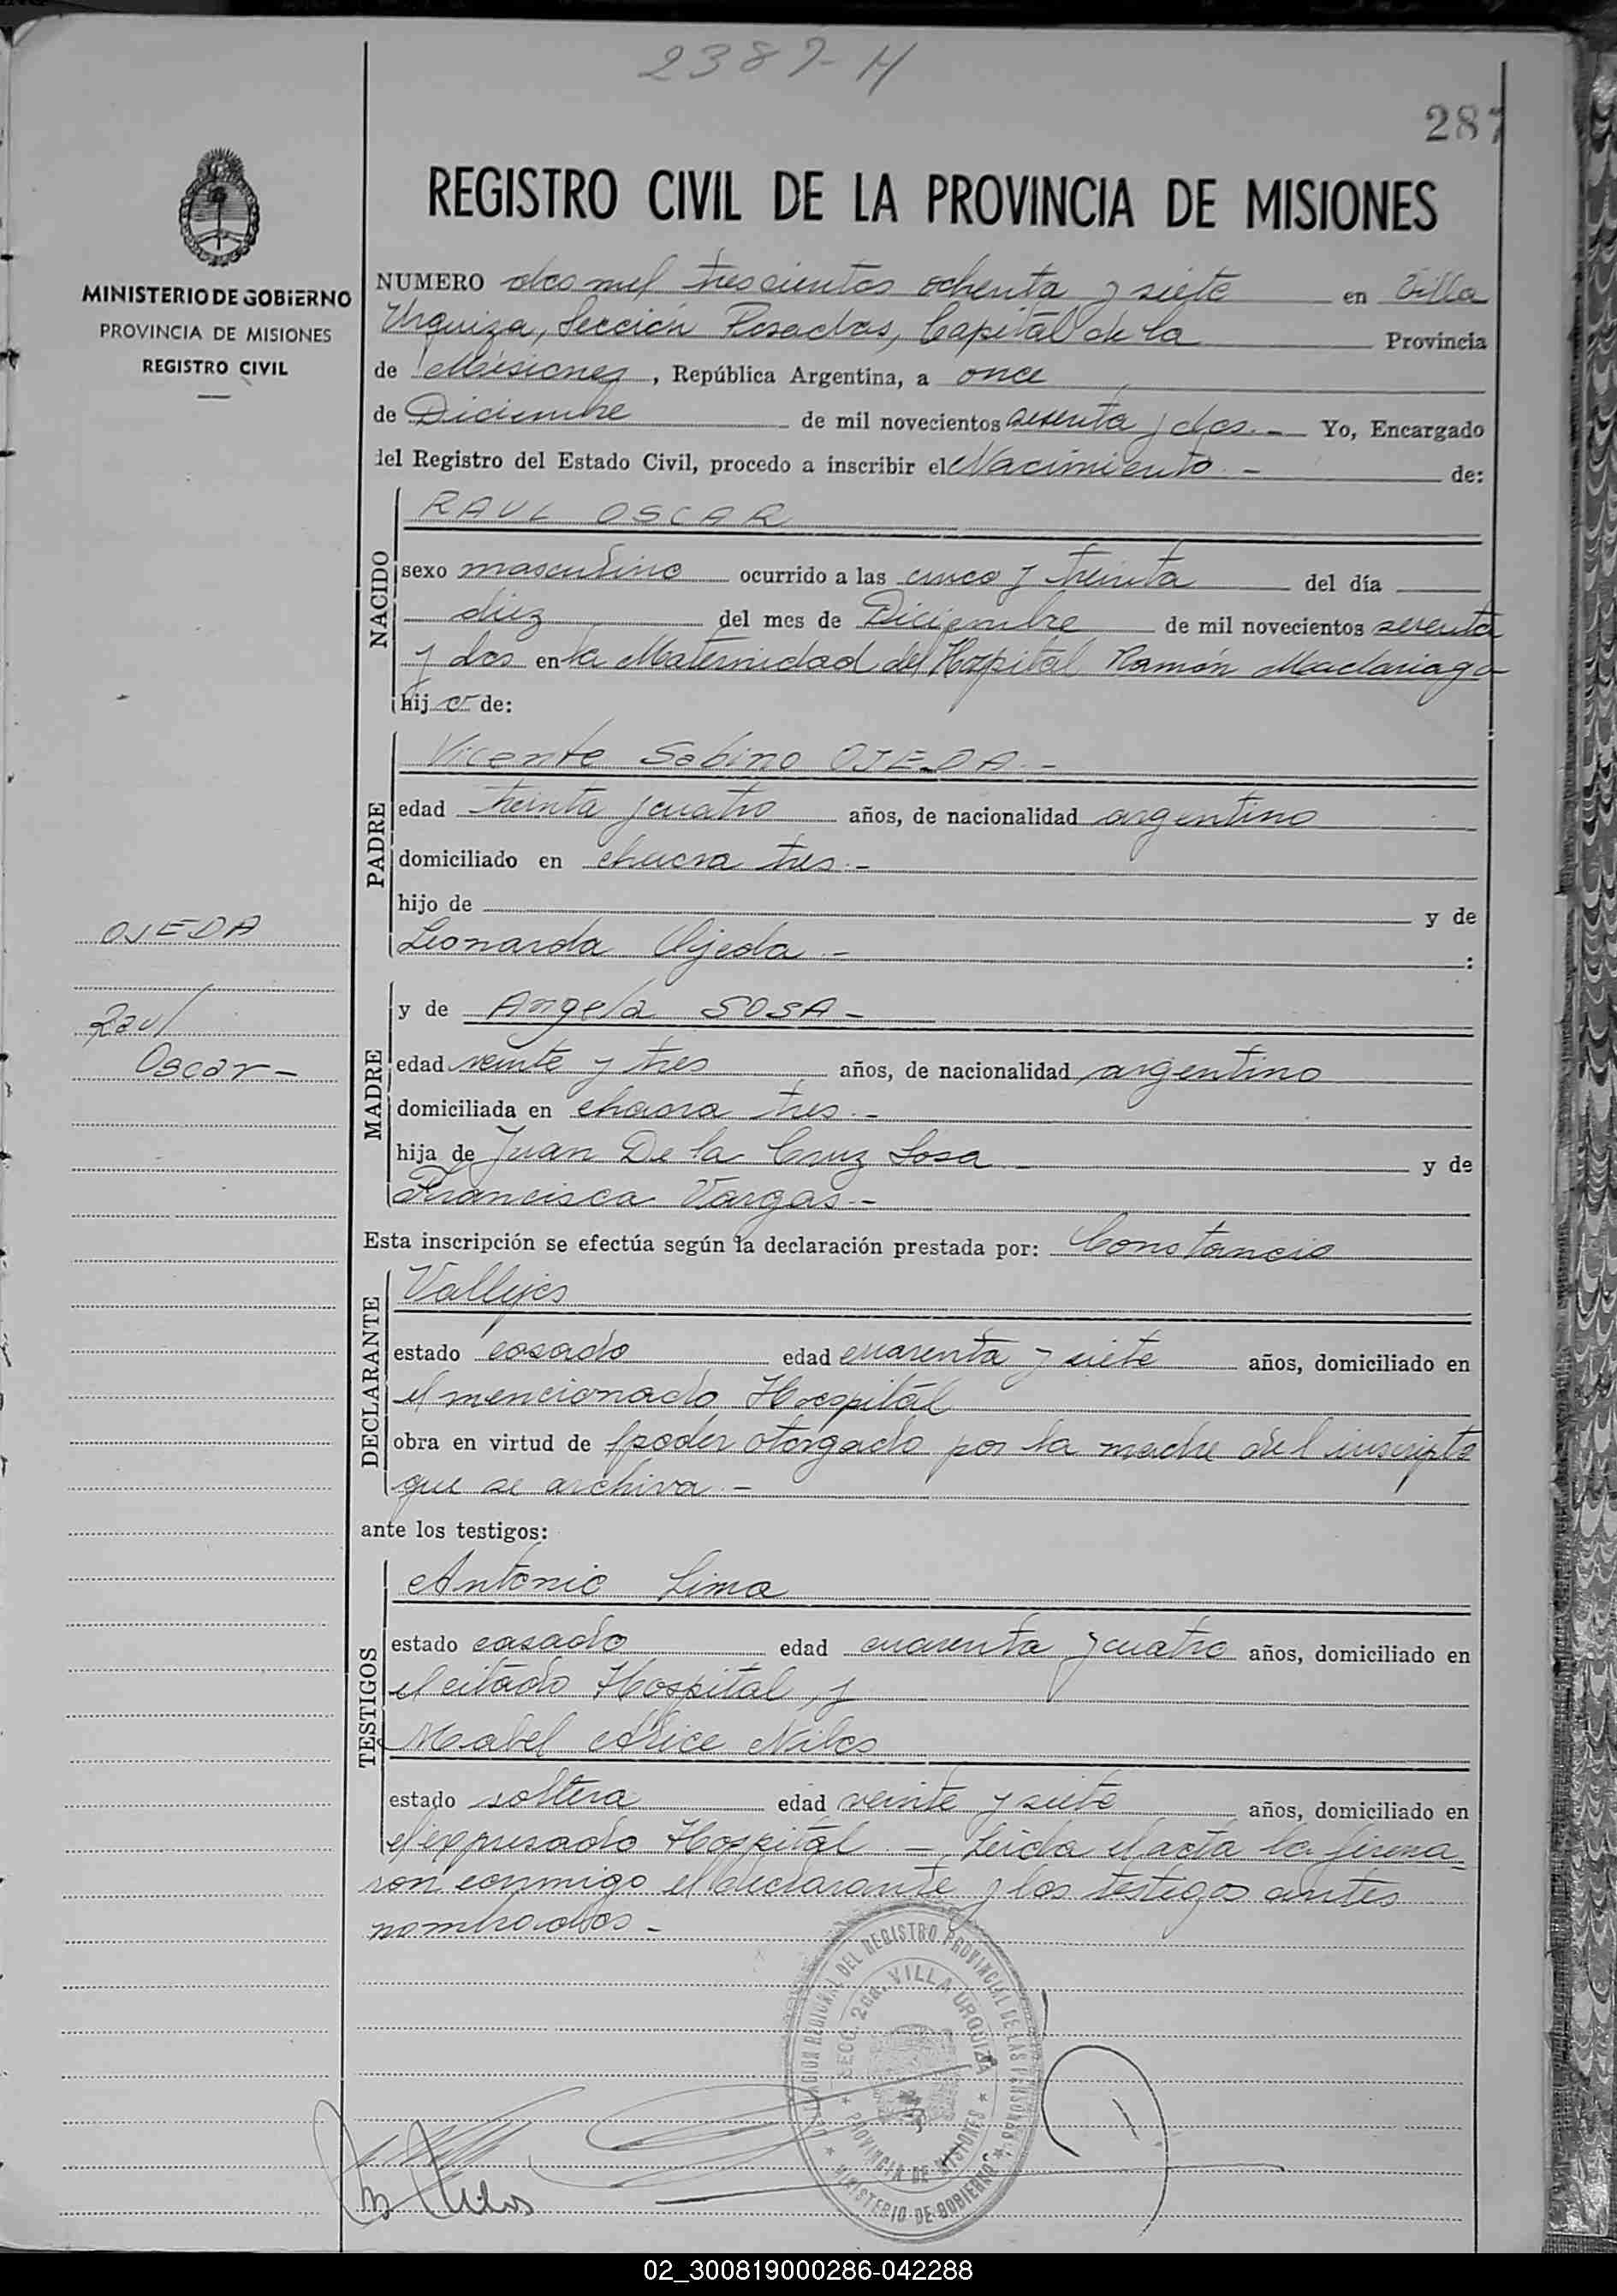 2387-H
287
REGISTRO CIVIL DE LA PROVINCIA DE MISIONES
MINISTERIO DE GOBIERNO
PROVINCIA DE MISIONES
REGISTRO CIVIL
NUMERO dos mil trescientos ochenta y siete en Villa
Urquiza, Sección Posadas, Capital de la Provincia
de Misiones, República Argentina, a once
de Diciembre de mil novecientos sesenta y dos.- Yo, Encargado
del Registro del Estado Civil, procedo a inscribir el Nacimiento.- de:
NACIDO
RAUL OSCAR
sexo masculino ocurrido a las cinco y treinta del día
diez del mes de Diciembre de mil novecientos sesenta
y dos en la Maternidad del Hospital Ramón Madariaga
hijo de:
PADRE
Vicente Sabino OJEDA.-
edad treinta y cuatro años, de nacionalidad argentino
domiciliado en chacra tres.-
hijo de y de
Leonarda Ojeda.- :
OJEDA
Raul
Oscar-
MADRE
y de Angela SOSA-
edad veinte y tres años, de nacionalidad argentino
domiciliada en chacra tres.-
hija de Juan De la Cruz Sosa- y de
Francisca Vargas.-
Esta inscripción se efectúa según la declaración prestada por: Constancio
DECLARANTE
Vallejos
estado casado edad cuarenta y siete años, domiciliado en
el mencionado Hospital
obra en virtud de poder otorgado por la madre del inscripto
que se archiva.-
ante los testigos:
TESTIGOS
Antonio Lima
estado casado edad cuarenta y cuatro años, domiciliado en
el citado Hospital, y
Mabel Alice Nilos
estado soltera edad veinte y siete años, domiciliado en
el expresado Hospital.- Leida el acta la firma
ron conmigo el declarante y los testigos antes
nombrados-
DEL REGISTRO PROVINCIAL DE LAS PERSONAS
SECC. 2da. VILLA URQUIZA
PROVINCIA DE MISIONES
MINISTERIO DE GOBIERNO
02_300819000286-042288